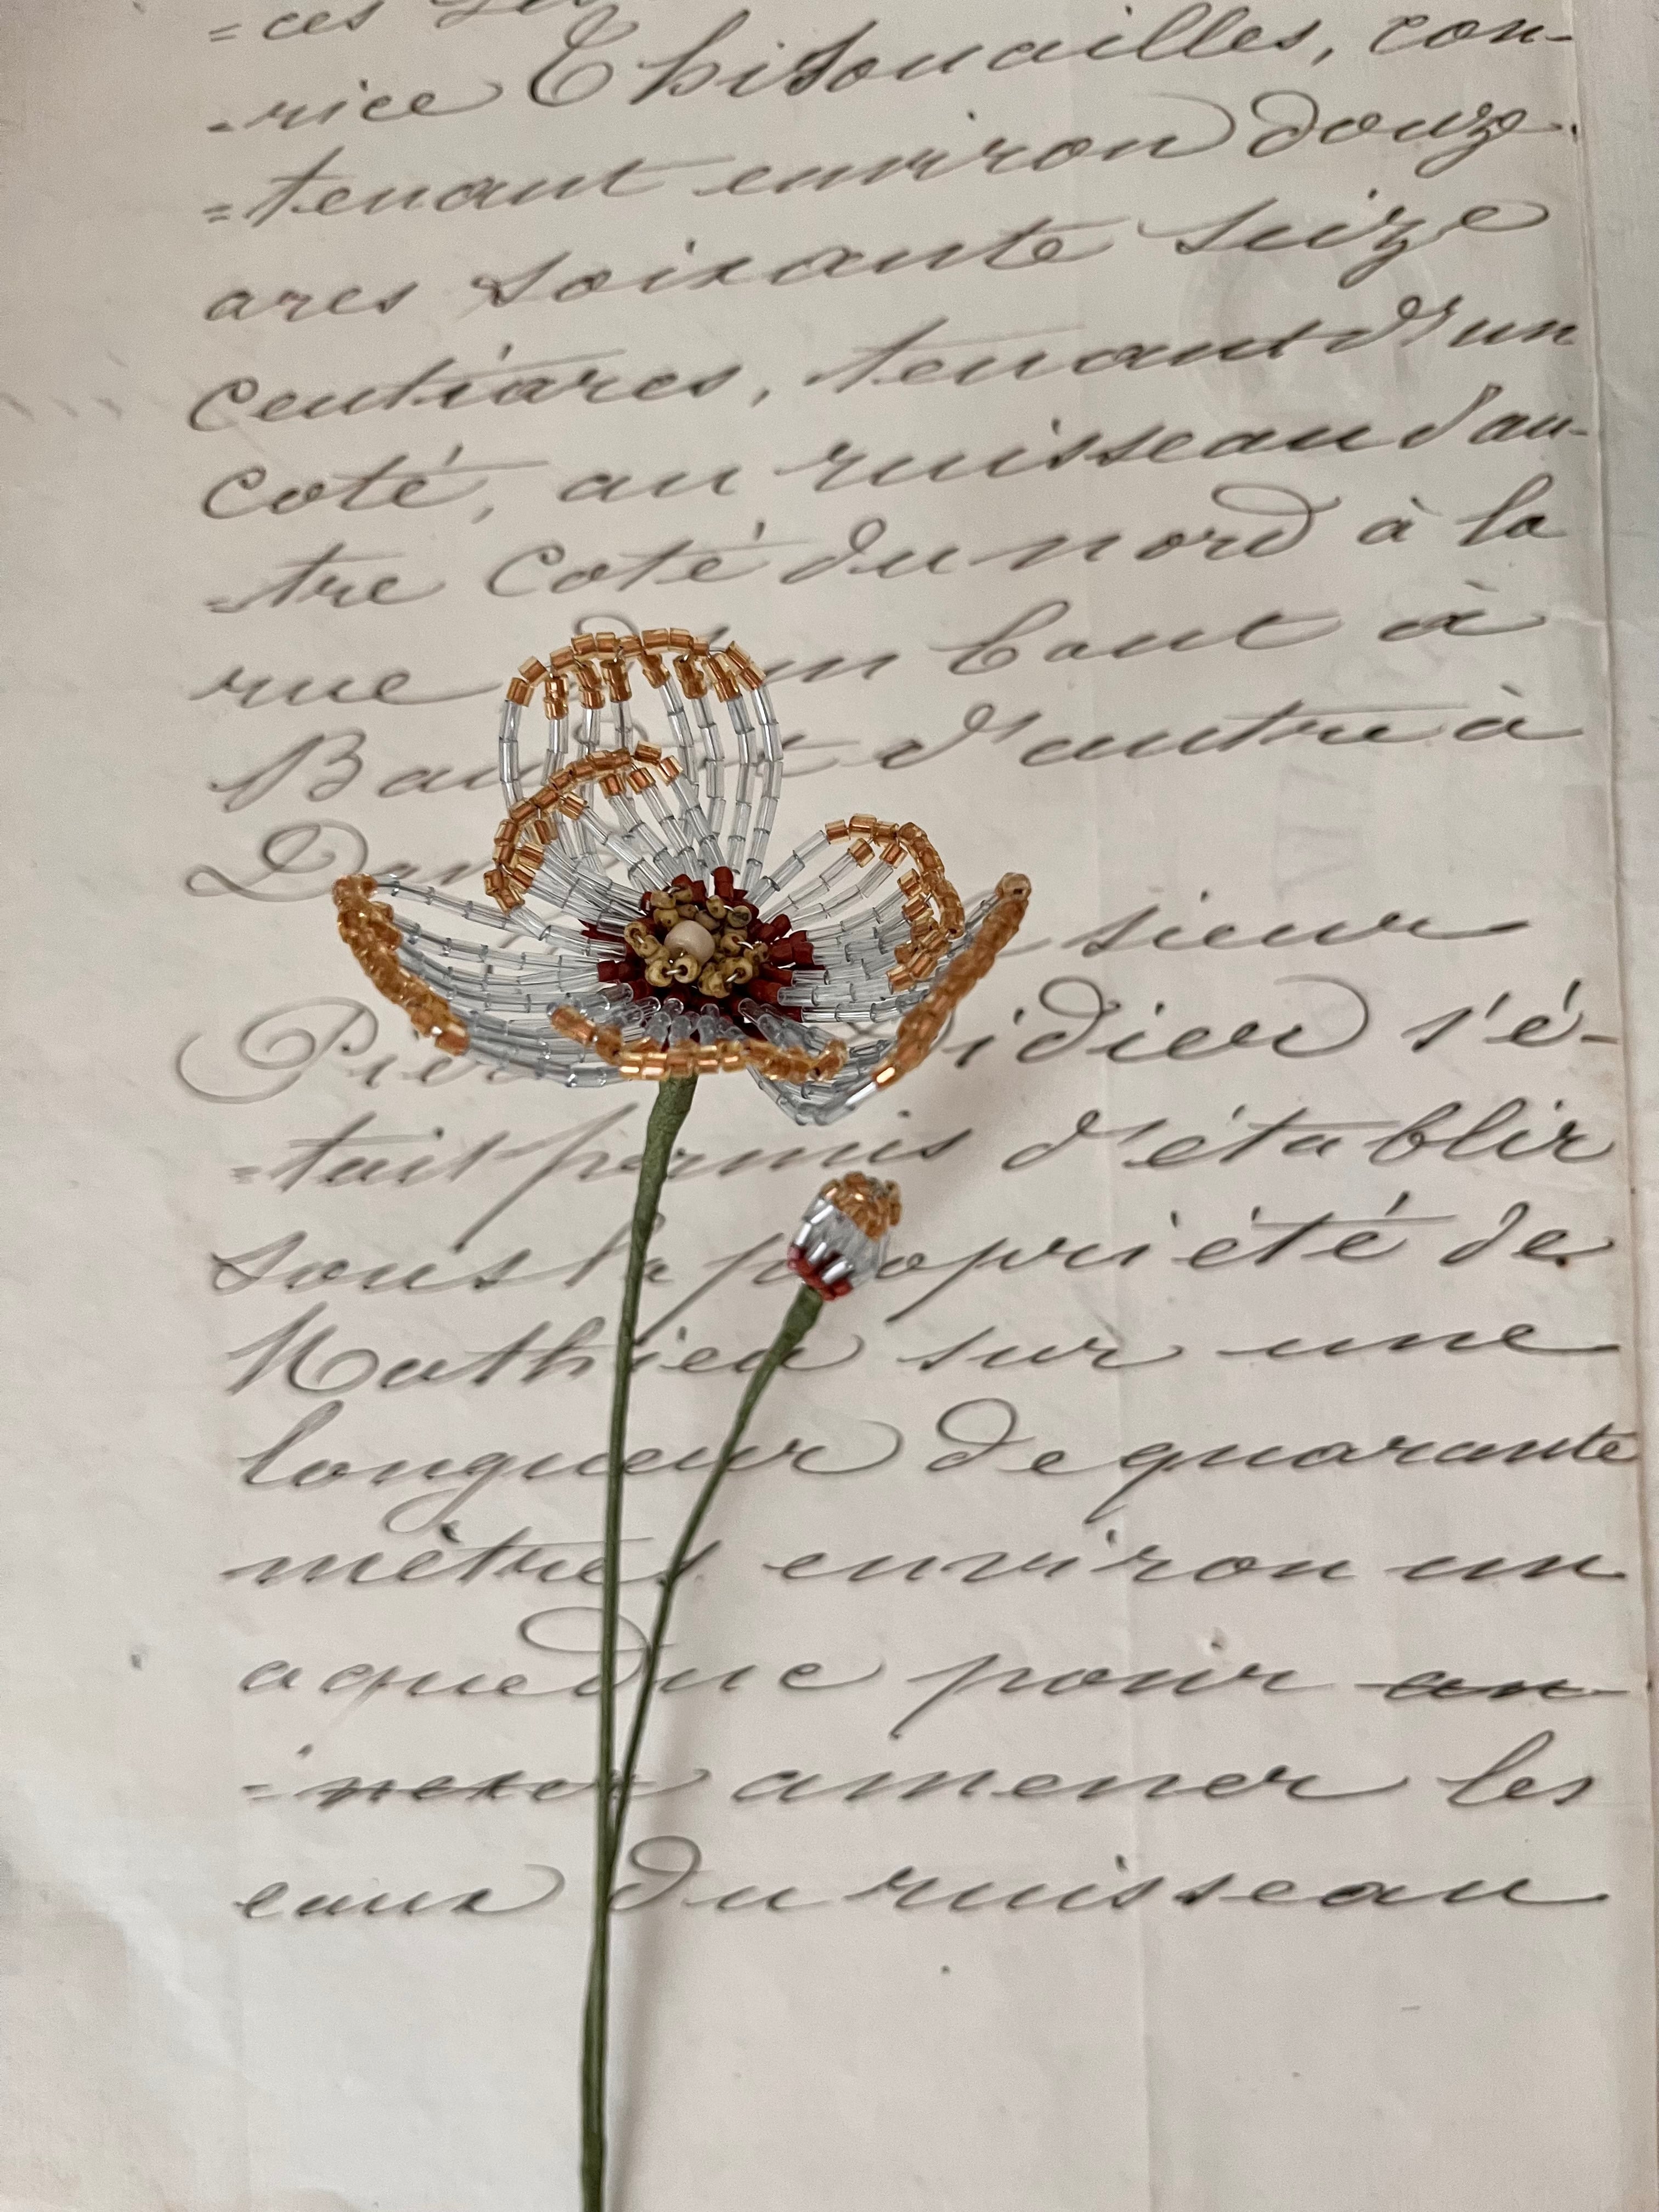 =ces
-rice Thisouailles, con-
=tenant environ douze
ares soixante seize
centiares, tenant d'un
coté, au ruisseau d'au-
=tre coté du nord à la
rue un bout à
d'autre à
sieur
idier s'é-
=tait permis d'établir
sous la propriété de
Mathieu sur une
longueur de quarante
mètres environ un
aqueduc pour an
=nexer amener les
eaux du ruisseau